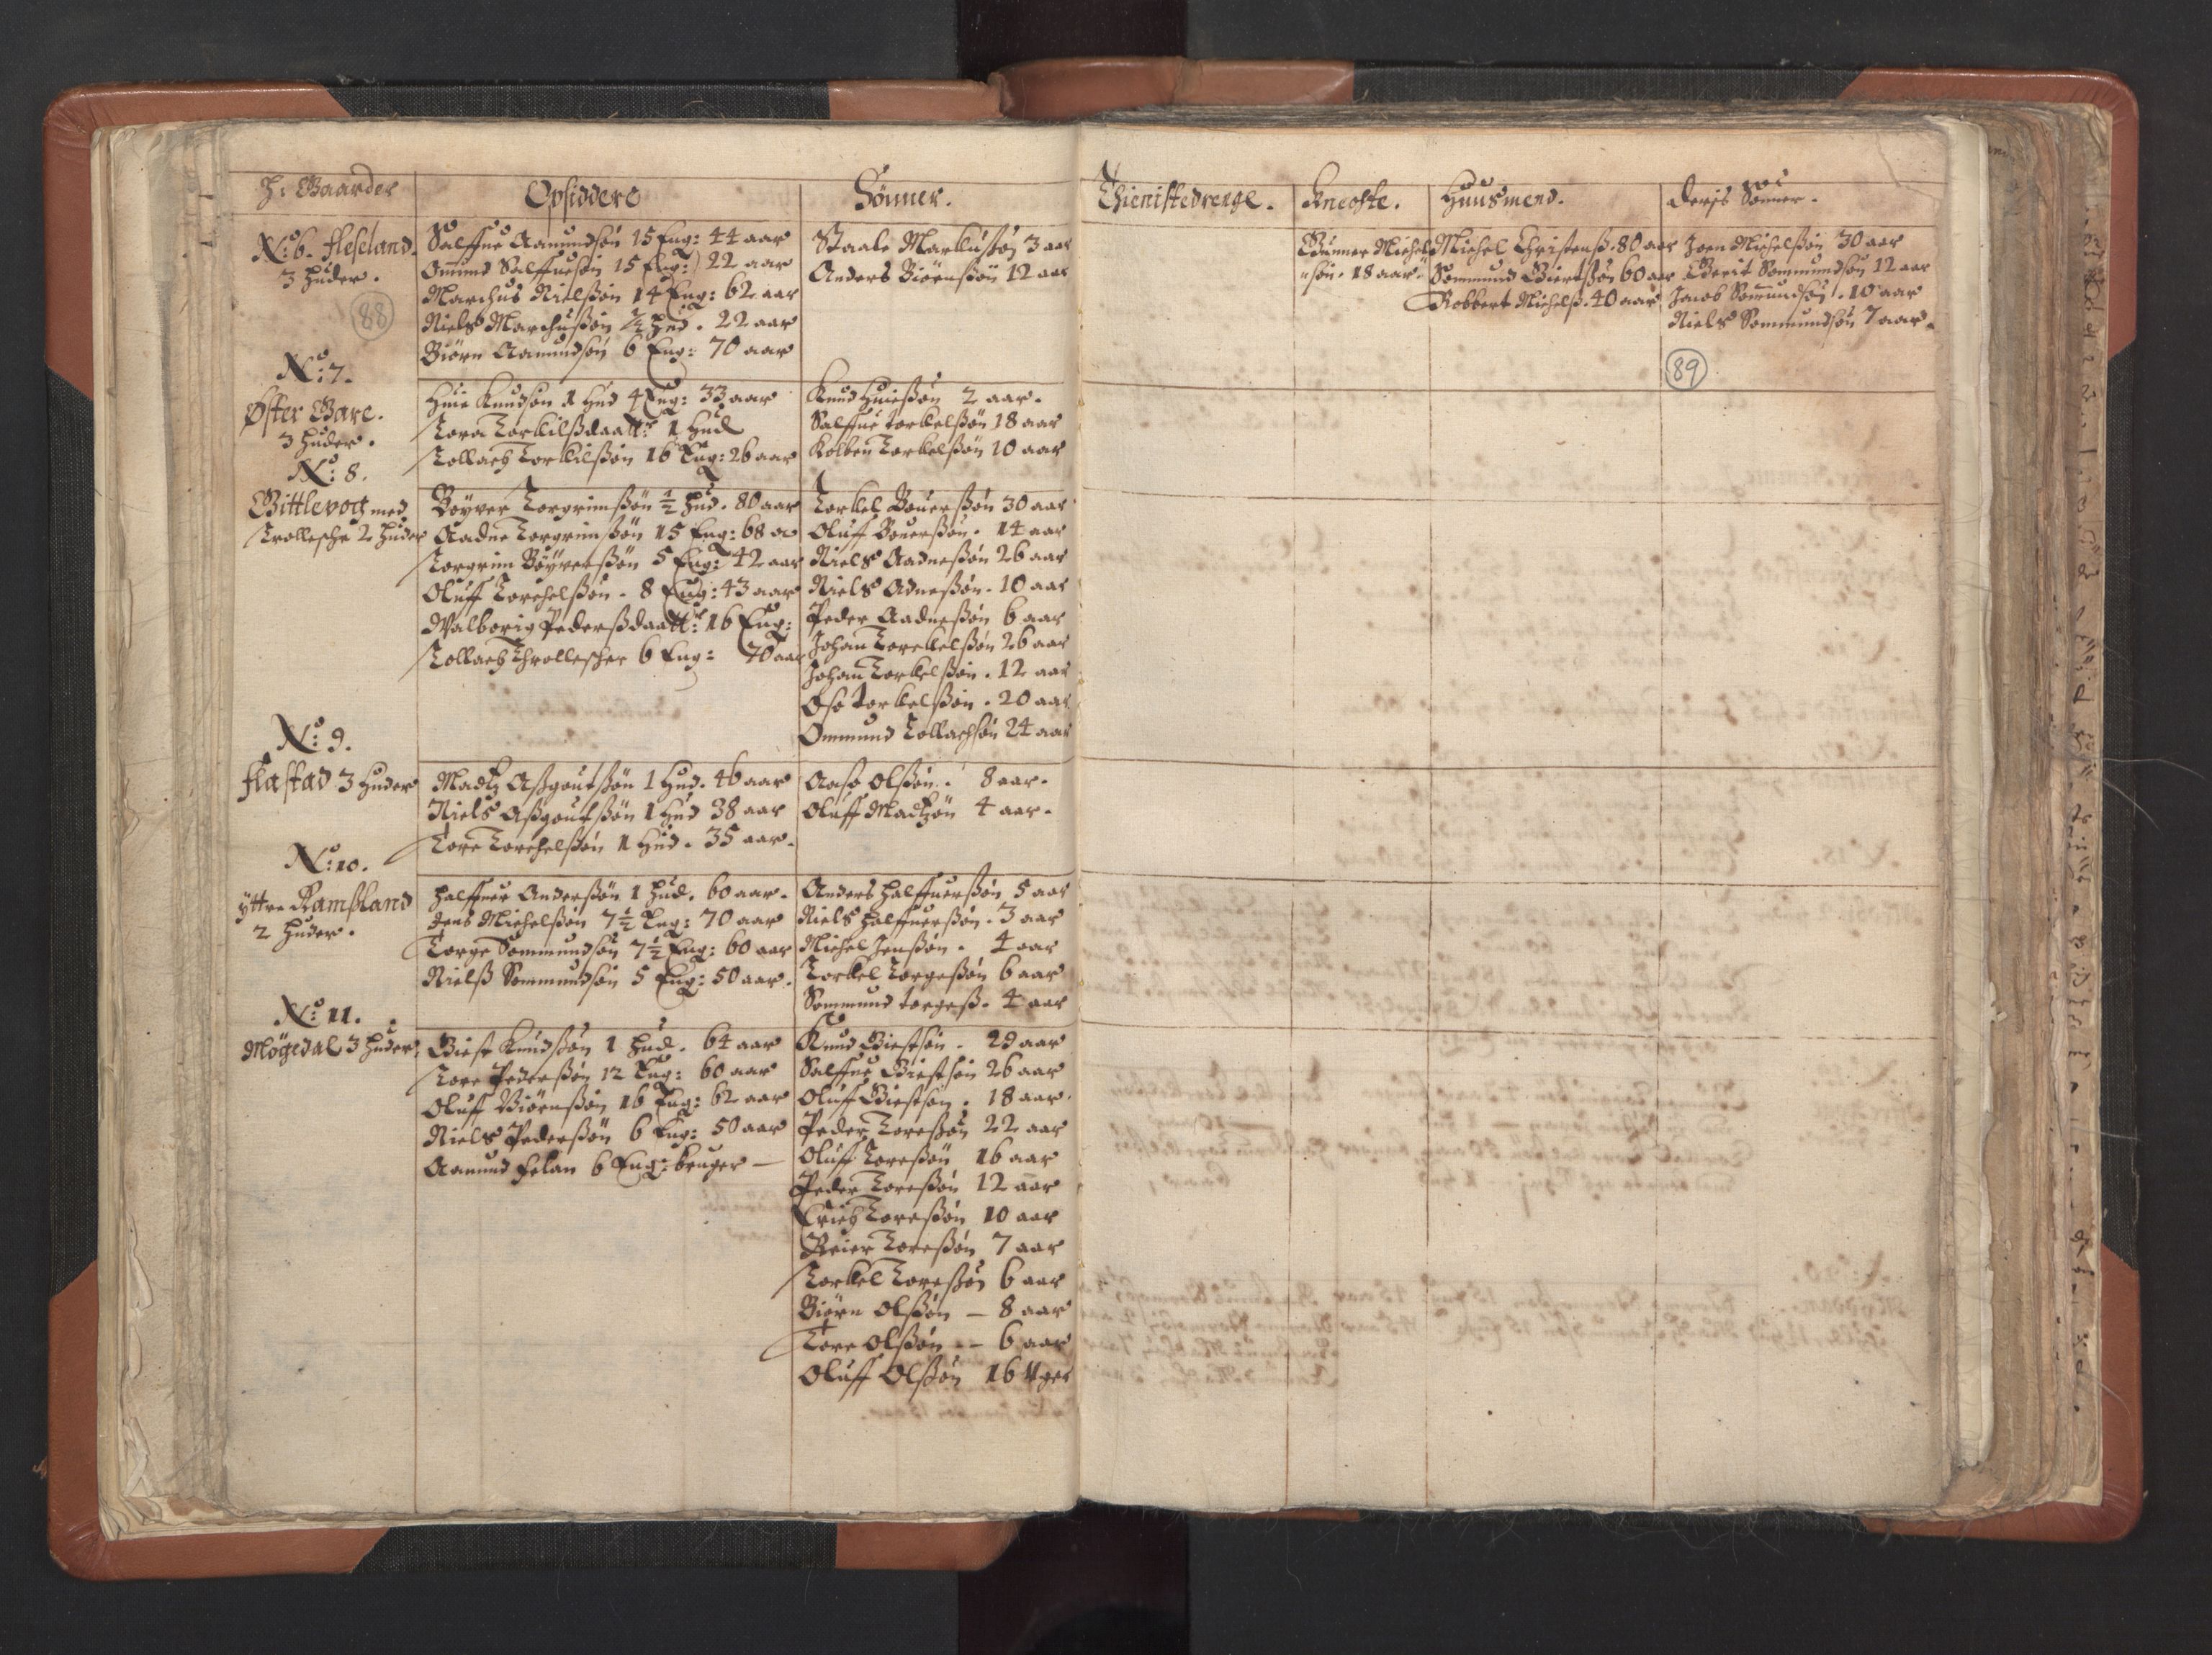 H: Gaarder
Opsiddere
Sønner.
Thienistedrenge.
Knechte.
Huusmend.
Deris Sønner.
No: 6. Fleseland.
3 Huder.
88
Salffue Aamundsøn 15 Eng: 44 aar
Omund Salffuesøn 15 Eng: 22 aar
Marchus Nielsøn 14 Eng: 62 aar
Niels Marchusøn ½ Hud. 22 aar
Biørn Aamundsøn 6 Eng: 70 aar
Staale Markusøn 3 aar
Anders Biørensøn 12 aar
Gunner Michel
søn. 18 aar
Michel Christenß. 80 aar
Sommund Giertsøn 60 aar
Robbert Michelß. 40 aar
Joen Michelßøn 30 aar
Berit Sommundsøn 12 aar
Jacob Sommundsøn. 10 aar
Niels Sommundsøn 7 aar.
89
No: 7.
Øster Bare.
3 Huder.
Huie Knudsøn 1 Hud 4 Eng: 33 aar
Tora Torkilßdaatt: 1 Hud
Tollach Torkilßøn 16 Eng: 26 aar
Knud Huießøn 2 aar.
Salffue Torkelßøn 18 aar
Kolben Torkelßøn 10 aar
No: 8.
Gittlevog med
Trollesche 2 Huder
Bøyver Torgrimßøn ½ Hud. 80 aar
Aadne Torgrimßøn 15 Eng: 68 a
Torgrim Bøyverßøn 5 Eng: 42 aar
Oluff Torchelßøn. 8 Eng: 43 aar
Walborig Pederßdaatt: 16 Eng:
Tollach Throllescher 6 Eng: 70 aar
Torkel Bøuerßøn 30 aar
Oluff Bøuerßøn. 14 aar
Niels Aadneßøn 26 aar
Niels Adneßøn. 10 aar
Peder Aadneßøn 6 aar
Johan Torckelßøn 26 aar
Johan Torkelßøn. 12 aar
Oße Torkelßøn. 20 aar
Ommund Tollachsøn 24 aar
No: 9.
Flastad 3 Huder
Madtz Aßgoutßøn 1 Hud. 46 aar
Niels Aßgoutßøn 1 Hud 38 aar
Tore Torchelßøn 1 Hud. 35 aar.
Aase Olßøn. 8 aar.
Oluff Madtzøn 4 aar.
No: 10.
yttre Ramßland
2 Huder.
Halffuer Anderßøn 1 Hud. 60 aar.
Jens Michelßøn 7½ Eng: 70 aar
Torge Sommundsøn 7½ Eng: 60 aar
Nielß Sommundsøn 5 Eng: 50 aar.
Anders Halffuerßøn 5 aar
Niels Halffuerßøn. 3 aar
Michel Jenßøn. 4 aar
Torkel Torgeßøn 6 aar
Sommund Torgeß. 4 aar
No: 11.
Møgedal 3 Huder
Giest Knudßøn 1 Hud. 64 aar
Tore Pederßøn 12 Eng: 60 aar
Oluff Biørnßøn 16 Eng: 62 aar
Niels Pederßøn 6 Eng: 50 aar
Aamund Felan 6 Eng: bruger —
Knud Giestsøn. 29 aar
Salffue Giestsøn 26 aar
Oluff Giestsøn. 18 aar.
Peder Toreßøn 22 aar
Oluff Toreßøn 16 aar
Peder Toreßøn 12 aar
Erich Toreßøn 10 aar
Reier Toreßøn 7 aar
Torkel Toreßøn 6 aar
Biørn Olßøn — 8 aar
Tore Olßøn — 6 aar
Oluff Olßøn 16 Uger